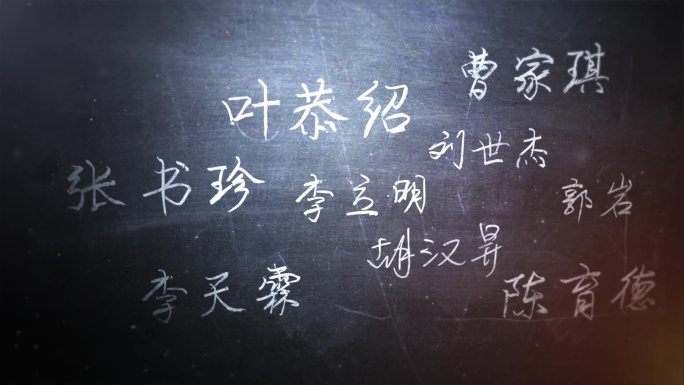 曹家琪
叶恭绍
刘世杰
张书珍
李立明
郭岩
胡汉昇
李天霖
陈育德